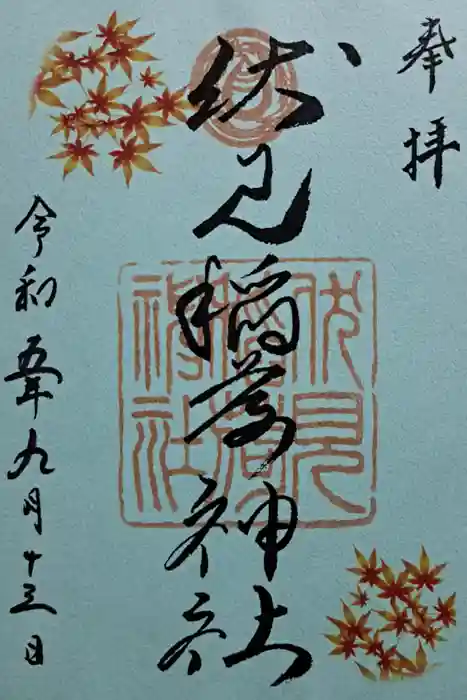 奉拝
伏見稲荷神社
伏見
稲荷
神社
令和五年九月十三日